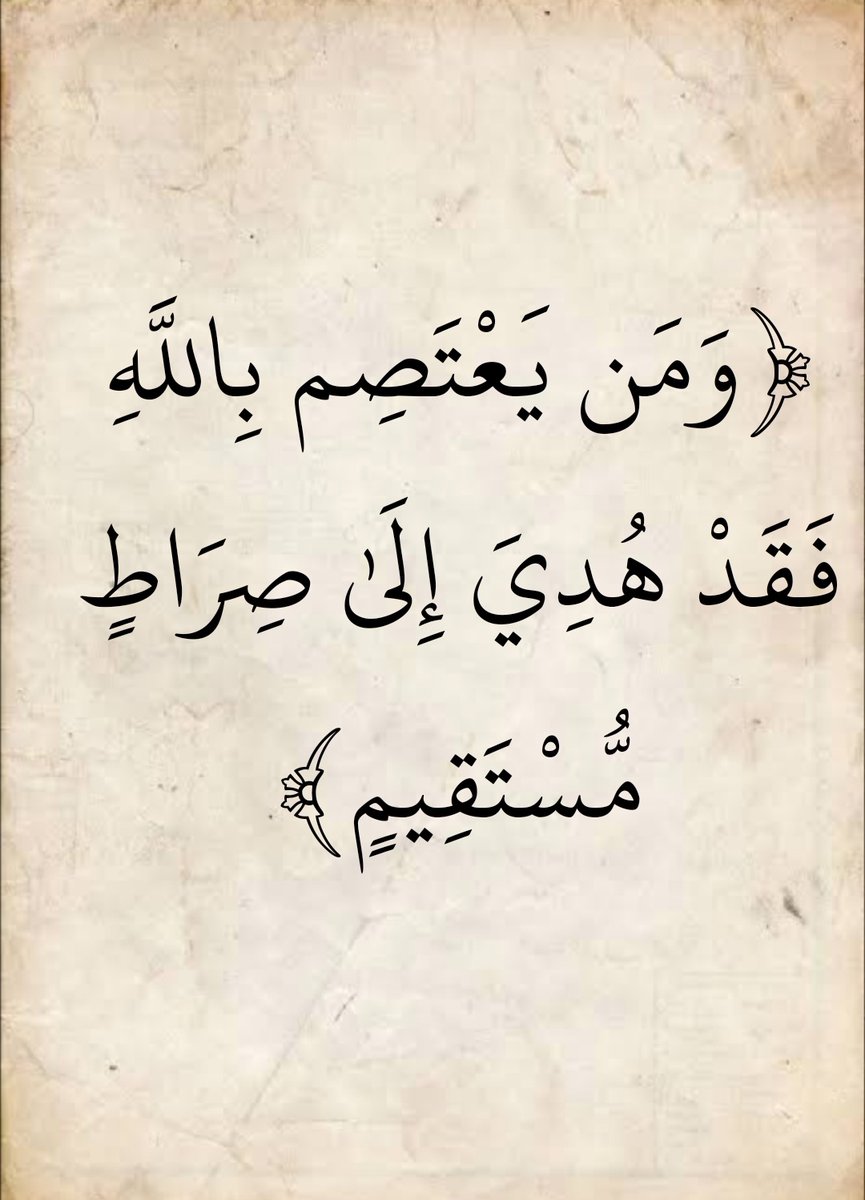 ﴿وَمَن يَعْتَصِم بِاللَّهِ
فَقَدْ هُدِيَ إِلَىٰ صِرَاطٍ
مُّسْتَقِيمٍ﴾